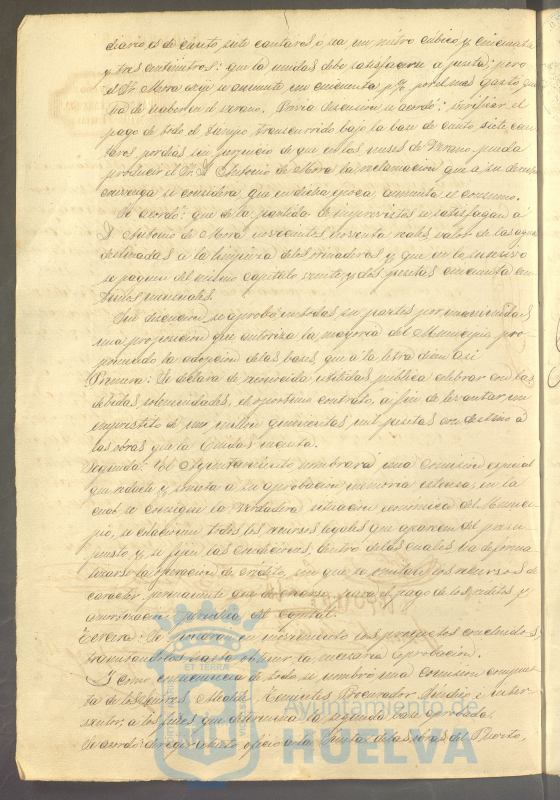 diario es de ciento siete cantaros o sea un metro cubico y cincuenta
y tres centimetros: que la unidad debe satisfacerse a peseta; pero
el Sr. Mora exije se aumente un cincuenta p% por el mas gasto que
ha de haber en el verano. Previa discusion se acordó: verificar el
pago de todo el tiempo transcurrido bajo la base de ciento siete can-
taros por dias sin perjuicio de que en los meses de Verano pueda
producir el Sr. D. Antonio de Mora la reclamacion que a su derecho
convenga si considera que en dicha epoca aumenta el consumo.
Se acordó: que de la partida de imprevistos se satisfagan a
D. Antonio de Mora novecientos noventa reales, valor de las aguas
destinadas a la limpieza de los meaderos y que en lo sucesivo
se paguen del mismo capitulo veinte y dos pesetas cincuenta cen-
timos mensuales.
Sin discusion se aprobó en todas sus partes por unanimidad
una proposicion que autoriza la mayoria del Municipio pro-
poniendo la adopcion de las bases que a la letra dicen asi
Primera: Se declara de reconocida utilidad publica celebrar con las
debidas solemnidades, el oportuno contrato, a fin de levantar un
emprestito de un millon quinientas mil pesetas con destino a
las obras que la Ciudad necesita.
Segunda: El Ayuntamiento nombrará una Comision especial
que redacte y someta a su aprobacion memoria extensa, en la
cual se consigne la verdadera situacion economica del Munici-
pio, se enumeren todos los recursos legales que aparecen del presu-
puesto y se fijen las condiciones, dentro de las cuales ha de forma-
lizarse la operacion de credito, sin que se omitan los recursos de
caracter permanente que para el pago de los reditos y
amortizacion del capital.
Tercera: Se pondran en movimiento los proyectos concluidos
tramitandolos hasta obtener la necesaria aprobacion.
Y como consecuencia de todo se nombró una comision compues-
ta de los Señores Alcalde, Tenientes, Procurador Sindico e inter-
ventor, a los fines que determina la segunda base aprobada.
Se acordó: dirigir atento oficio a la Junta de las obras del Puerto,
ET TERRÆ
Ayuntamiento de
HUELVA